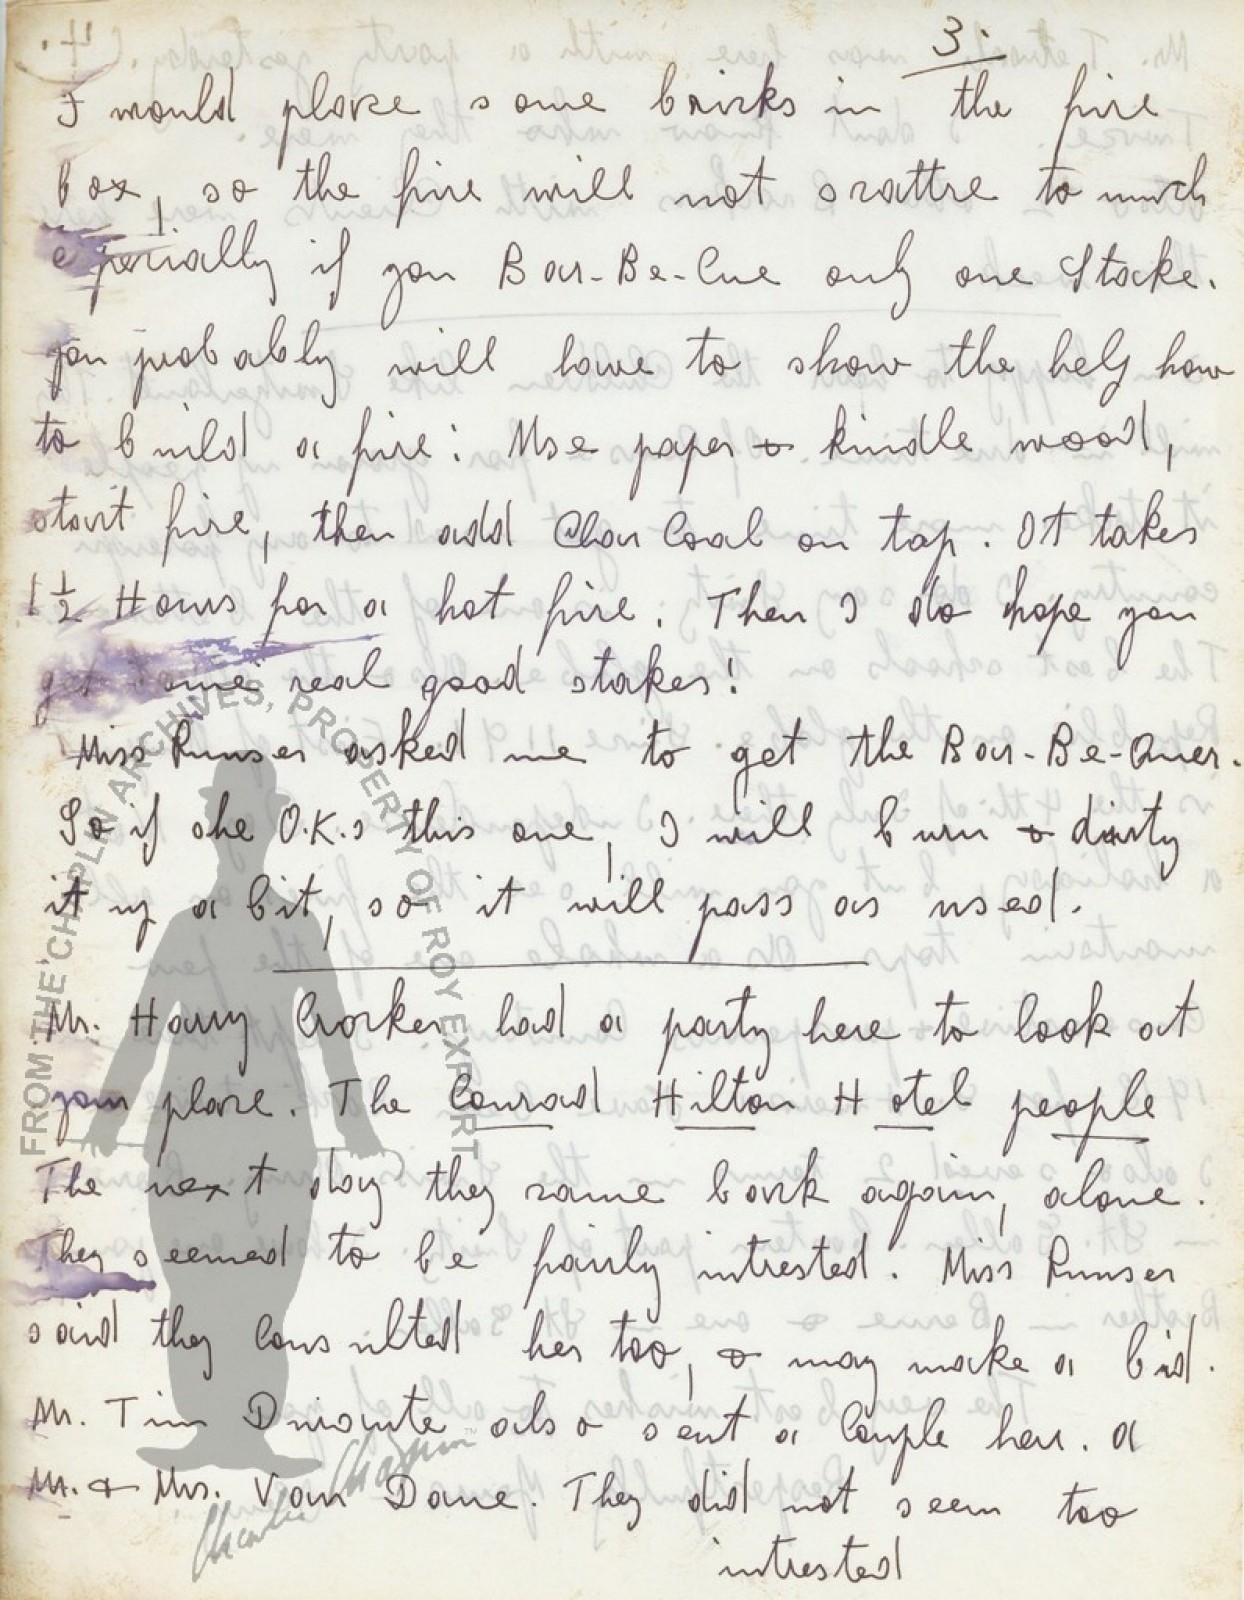 3.
I would place some bricks in the fire
box, so the fire will not scattre to much
especially if you Bar-Be-Cue only one Stake.
you probably will have to show the help how
to build a fire: Use paper & kindle wood,
start fire, then add Char Coal on top. It takes
1 1/2 Hours for a hot fire. Then I do hope you
get some real good stakes!
Miss Runser asked me to get the Bar-Be-Quer.
So if she O.K.s this one, I will burn & dirty
it up a bit, so it will pass as used.
Mr. Harry Crocker had a party here to look at
your place. The Conrad Hilton Hotel people
The next day they came back again, alone.
They seemed to be fairly intrested. Miss Runser
said they Consulted her too, & may make a bid.
Mr. Tim Duriante also sent a Couple hear. A
Mr. & Mrs. Van Dane. They did not seem too
intrested
FROM THE CHAPLIN ARCHIVES, PROPERTY OF ROY EXPORT
Charlie Chaplin